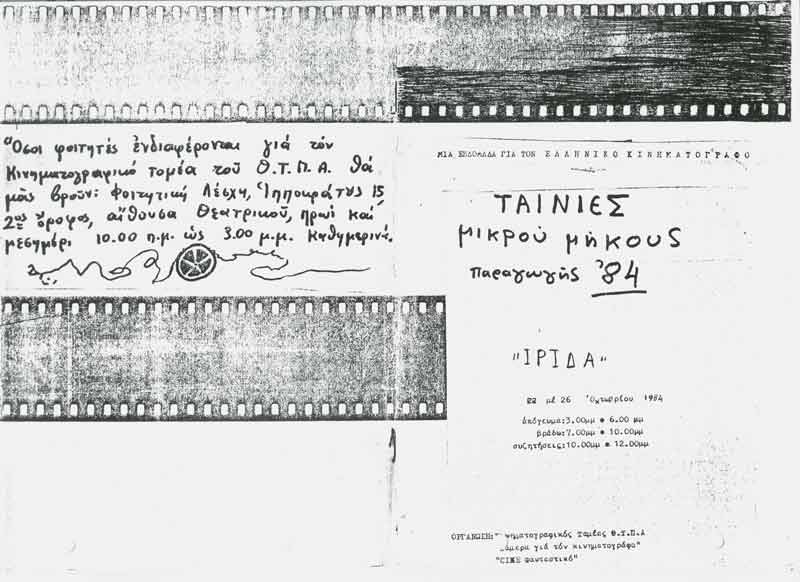 Ὅσοι φοιτητές ἐνδιαφέρονται γιά τόν
Κινηματογραφικό τομέα τοῦ Θ.Τ.Π.Α. θά
μᾶς βροῦν: Φοιτητική Λέσχη, Ἱπποκράτους 15,
2ος ὄροφος, αἴθουσα Θεατρικοῦ, πρωί καί
μεσημέρι 10.00 π.μ. ὡς 3.00 μ.μ. καθημερινά.
ΜΙΑ ΕΒΔΟΜΑΔΑ ΓΙΑ ΤΟΝ ΕΛΛΗΝΙΚΟ ΚΙΝΗΜΑΤΟΓΡΑΦΟ
ΤΑΙΝΙΕΣ
μικροῦ μήκους
παραγωγῆς '84
"ΙΡΙΔΑ"
22 μέ 26 Ὀκτωβρίου 1984
ἀπόγευμα:3.00μμ • 6.00 μμ
βράδυ:7.00μμ • 10.00μμ
συζητήσεις:10.00μμ • 12.00μμ
ΟΡΓΑΝΩΣΗ: νηματογραφικός Τομέας Θ.Τ.Π.Α
άμερα γιά τόν κινηματογράφο"
"CINE φανταστικό"